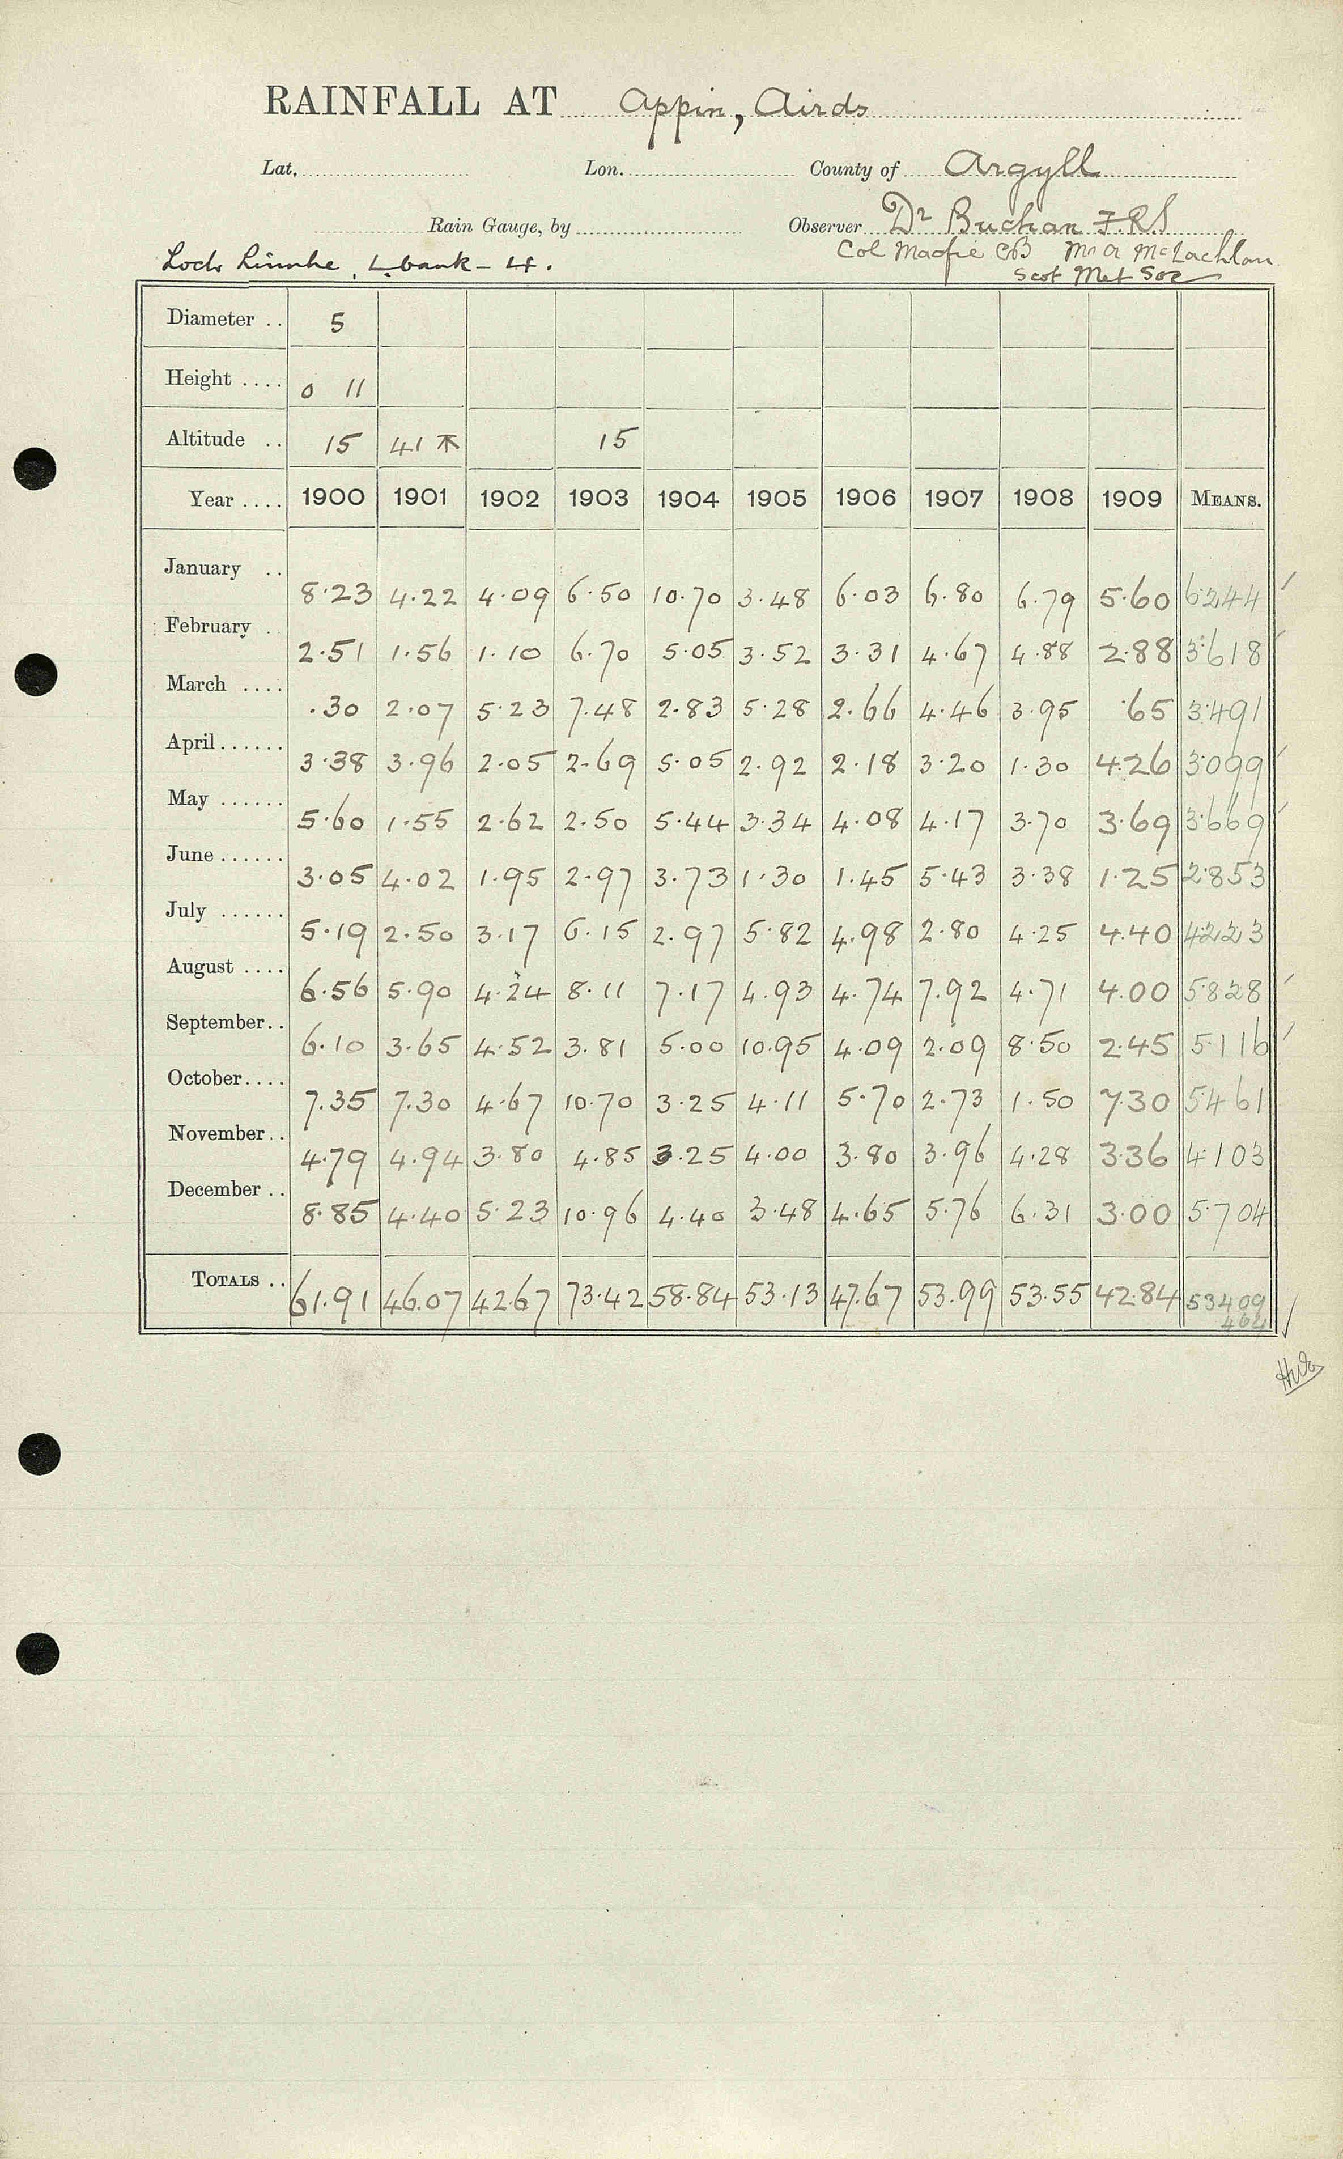 RAINFALL AT Appin, Airds
Lat. Lon. County of Argyll
Rain Gauge, by Observer Dr Buchan F.R.S
Col Macfie CB Mr A McLachlan
Loch Linnhe, L. bank - 4. Scot Met Soc
Diameter .. 5
Height .... 0 11
Altitude .. 15 41 15
Year .... 1900 1901 1902 1903 1904 1905 1906 1907 1908 1909 MEANS.
January .. 8.23 4.22 4.09 6.50 10.70 3.48 6.03 6.80 6.79 5.60 6.244
February . 2.51 1.56 1.10 6.70 5.05 3.52 3.31 4.67 4.88 2.88 3.618
March .... .30 2.07 5.23 7.48 2.83 5.28 2.66 4.46 3.95 .65 3.491
April ...... 3.38 3.96 2.05 2.69 5.05 2.92 2.18 3.20 1.30 4.26 3.099
May ...... 5.60 1.55 2.62 2.50 5.44 3.34 4.08 4.17 3.70 3.69 3.669
June ...... 3.05 4.02 1.95 2.97 3.73 1.30 1.45 5.43 3.38 1.25 2.853
July ...... 5.19 2.50 3.17 6.15 2.97 5.82 4.98 2.80 4.25 4.40 4.223
August .... 6.56 5.90 4.24 8.11 7.17 4.93 4.74 7.92 4.71 4.00 5.828
September .. 6.10 3.65 4.52 3.81 5.00 10.95 4.09 2.09 8.50 2.45 5.116
October .... 7.35 7.30 4.67 10.70 3.25 4.11 5.70 2.73 1.50 7.30 5.461
November .. 4.79 4.94 3.80 4.85 3.25 4.00 3.80 3.96 4.28 3.36 4.103
December .. 8.85 4.40 5.23 10.96 4.40 3.48 4.65 5.76 6.31 3.00 5.704
TOTALS .. 61.91 46.07 42.67 73.42 58.84 53.13 47.67 53.99 53.55 42.84 53409